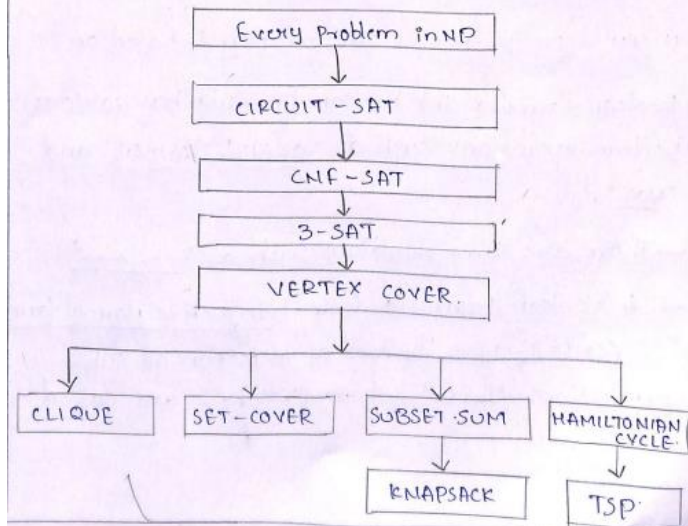 Every Problem in NP
CIRCUIT-SAT
CNF-SAT
3-SAT
VERTEX COVER.
CLIQUE
SET-COVER
SUBSET-SUM
HAMILTONIAN
CYCLE.
KNAPSACK
TSP.